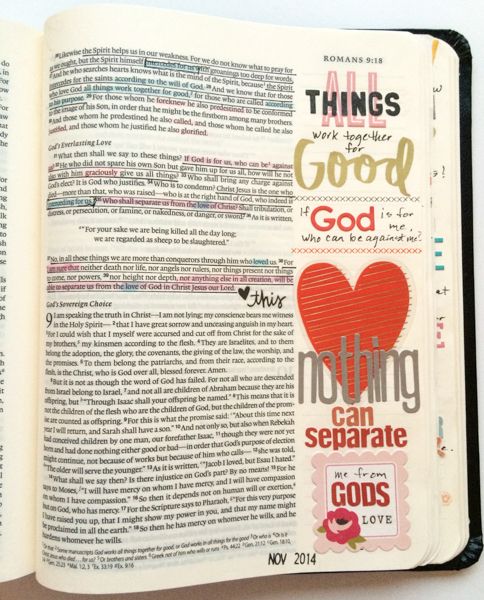 ROMANS 9:18
26 Likewise the Spirit helps us in our weakness. For we do not know what to pray for
as we ought, but the Spirit himself intercedes for us with groanings too deep for words.
And he who searches hearts knows what is the mind of the Spirit, because the Spirit
intercedes for the saints according to the will of God. 28 And we know that for those
who love God all things work together for good, for those who are called according
to his purpose. 29 For those whom he foreknew he also predestined to be conformed
to the image of his Son, in order that he might be the firstborn among many brothers.
And those whom he predestined he also called, and those whom he called he also
justified, and those whom he justified he also glorified.
God's Everlasting Love
What then shall we say to these things? If God is for us, who can be against
us? 32 He who did not spare his own Son but gave him up for us all, how will he not
also with him graciously give us all things? 33 Who shall bring any charge against
God's elect? It is God who justifies. 34 Who is to condemn? Christ Jesus is the one who
died—more than that, who was raised—who is at the right hand of God, who indeed is
interceding for us. 35 Who shall separate us from the love of Christ? Shall tribulation, or
distress, or persecution, or famine, or nakedness, or danger, or sword? 36 As it is written,
"For your sake we are being killed all the day long;
we are regarded as sheep to be slaughtered."
No, in all these things we are more than conquerors through him who loved us. 38 For
I am sure that neither death nor life, nor angels nor rulers, nor things present nor things
to come, nor powers, 39 nor height nor depth, nor anything else in all creation, will be
able to separate us from the love of God in Christ Jesus our Lord.
this
God's Sovereign Choice
9 I am speaking the truth in Christ—I am not lying; my conscience bears me witness
in the Holy Spirit— 2 that I have great sorrow and unceasing anguish in my heart.
3 For I could wish that I myself were accursed and cut off from Christ for the sake of
my brothers, my kinsmen according to the flesh. 4 They are Israelites, and to them
belong the adoption, the glory, the covenants, the giving of the law, the worship, and
the promises. 5 To them belong the patriarchs, and from their race, according to the
flesh, is the Christ, who is God over all, blessed forever. Amen.
6 But it is not as though the word of God has failed. For not all who are descended
from Israel belong to Israel, 7 and not all are children of Abraham because they are his
offspring, but "Through Isaac shall your offspring be named." 8 This means that it is
not the children of the flesh who are the children of God, but the children of the promise
are counted as offspring. 9 For this is what the promise said: "About this time next
year I will return, and Sarah shall have a son." 10 And not only so, but also when Rebekah
had conceived children by one man, our forefather Isaac, 11 though they were not yet
born and had done nothing either good or bad—in order that God's purpose of election
might continue, not because of works but because of him who calls— 12 she was told,
"The older will serve the younger." 13 As it is written, "Jacob I loved, but Esau I hated."
14 What shall we say then? Is there injustice on God's part? By no means! 15 For he
says to Moses, "I will have mercy on whom I have mercy, and I will have compassion
on whom I have compassion." 16 So then it depends not on human will or exertion,
but on God, who has mercy. 17 For the Scripture says to Pharaoh, "For this very purpose
I have raised you up, that I might show my power in you, and that my name might
be proclaimed in all the earth." 18 So then he has mercy on whomever he wills, and he
hardens whomever he wills.
ALL
THINGS
work together
for
Good
If God is for me,
who can be against me?
nothing
can
separate
me from
GODS
LOVE
NOV 2014